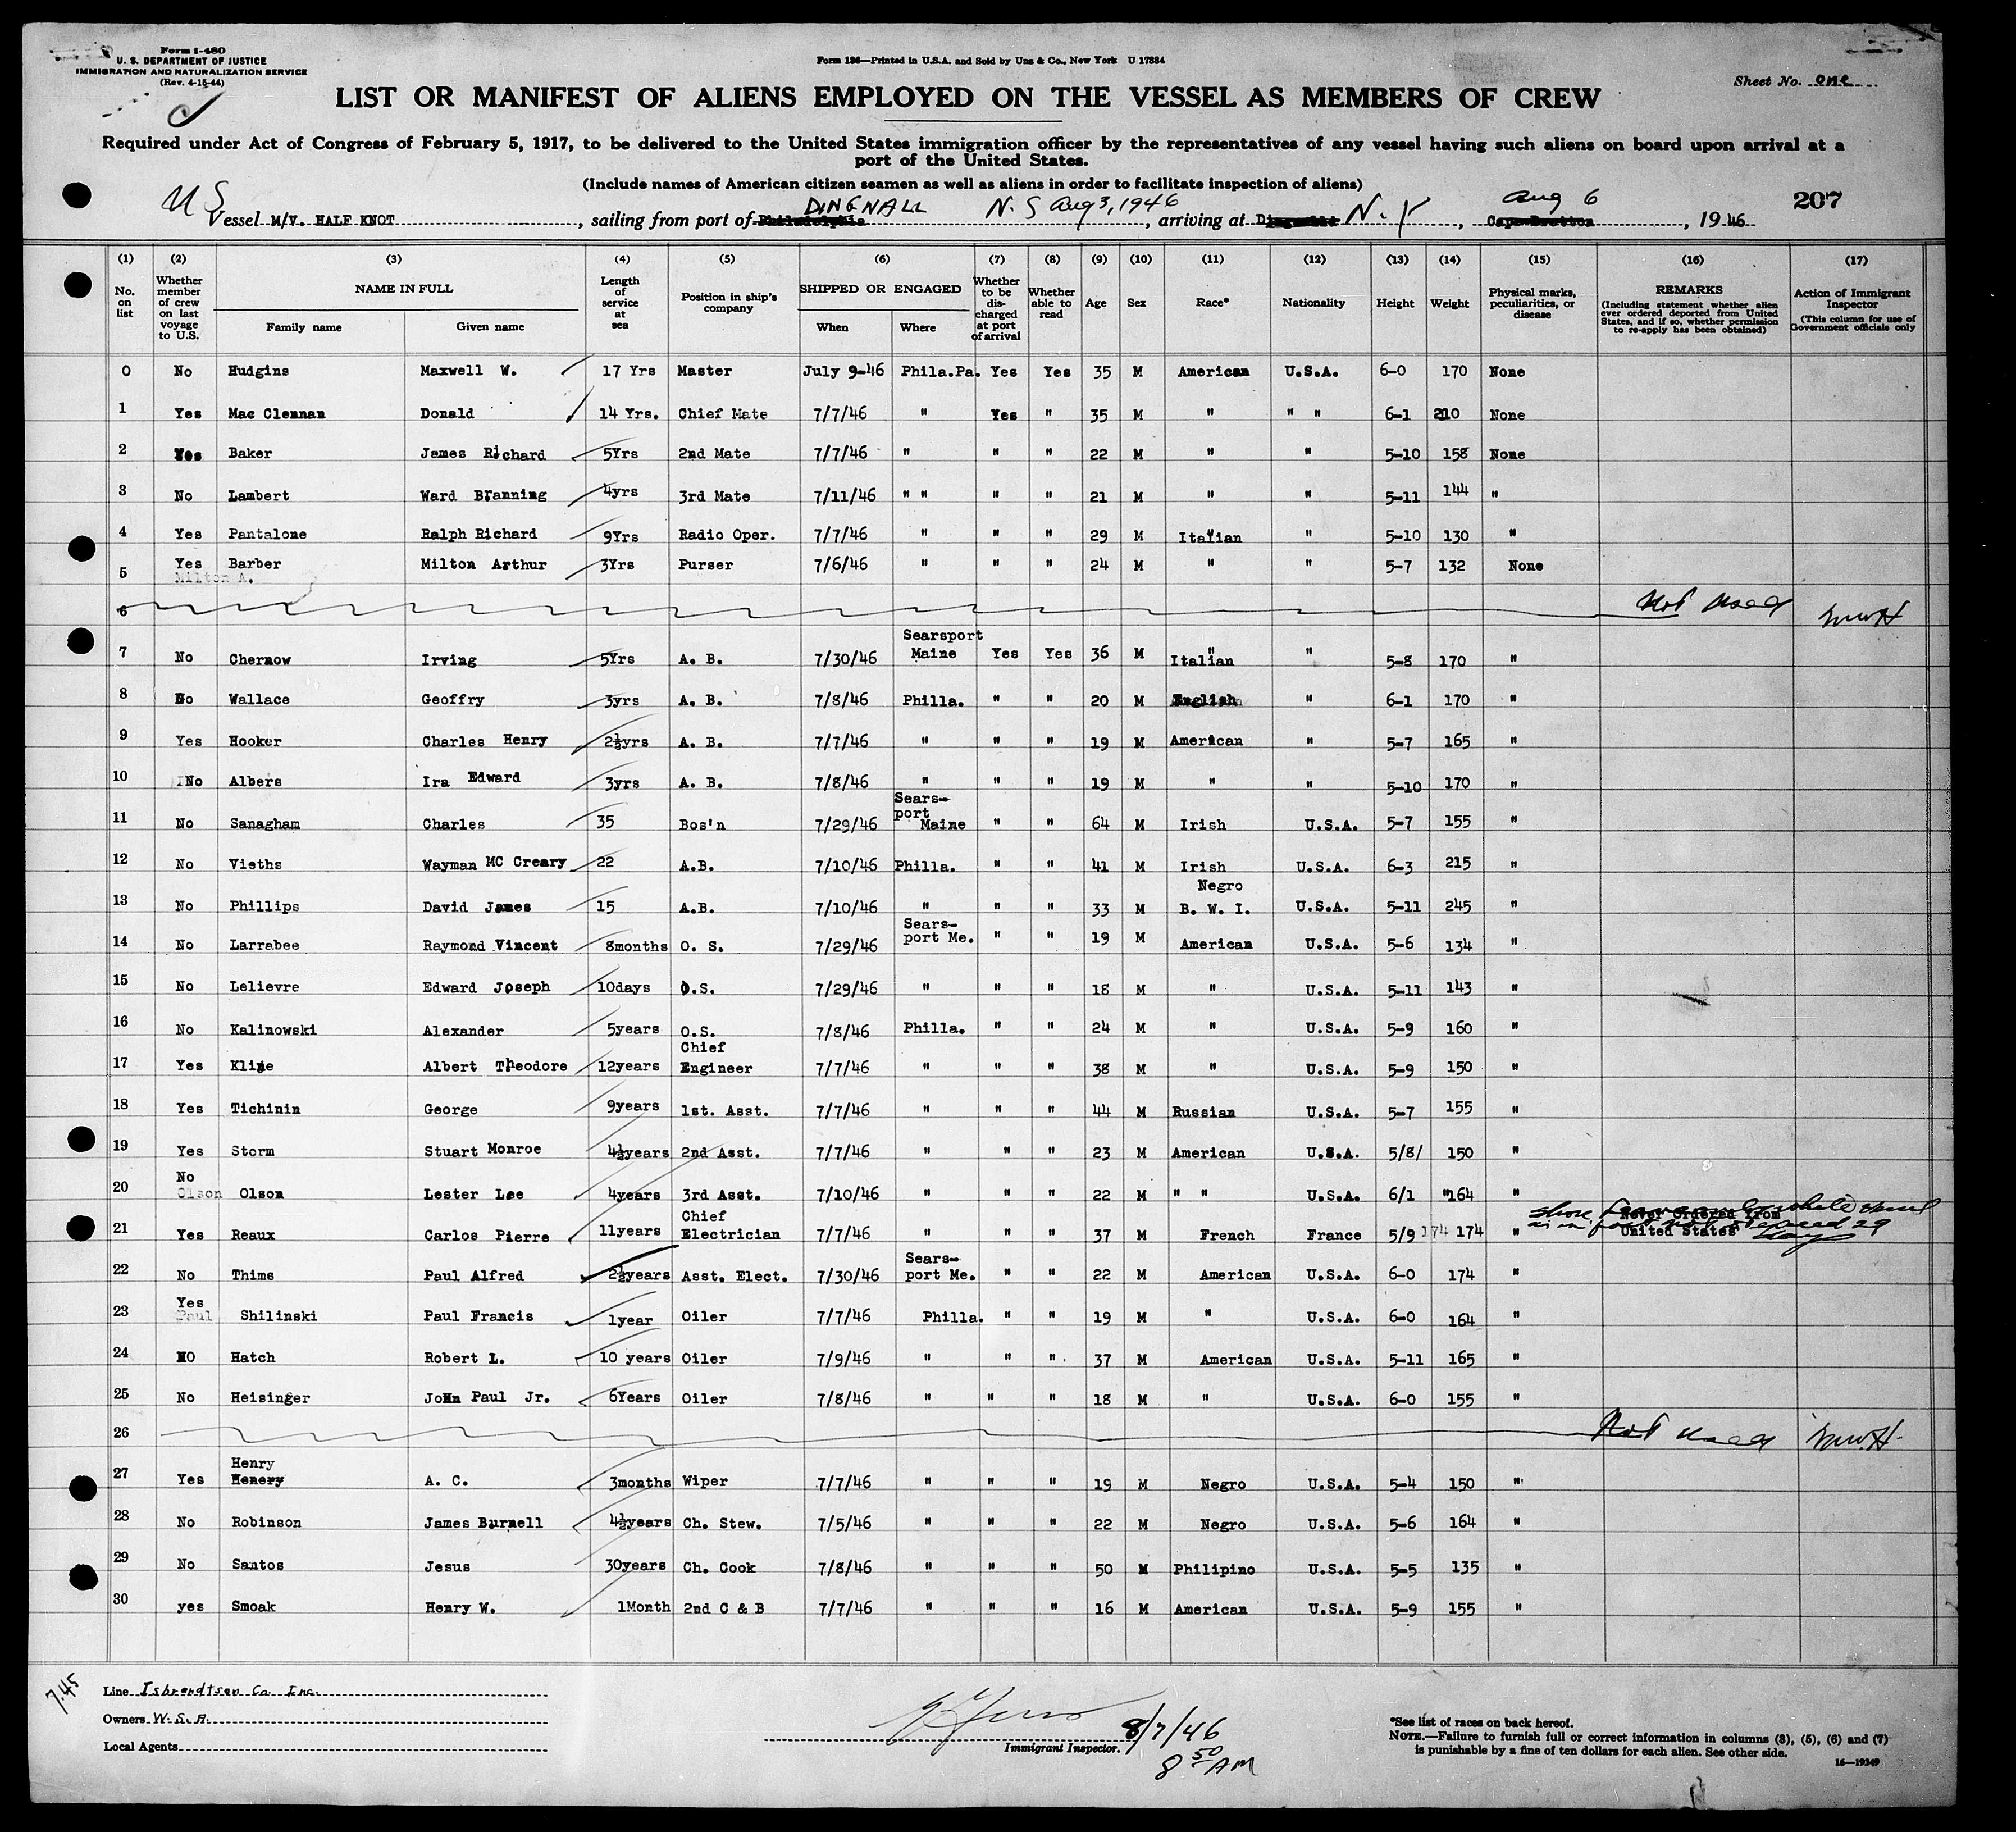 Form I-480
U. S. DEPARTMENT OF JUSTICE
IMMIGRATION AND NATURALIZATION SERVICE
(Rev. 4-15-44)
Form 186—Printed in U.S.A. and Sold by Unz & Co., New York U 17884
Sheet No. one
LIST OR MANIFEST OF ALIENS EMPLOYED ON THE VESSEL AS MEMBERS OF CREW
Required under Act of Congress of February 5, 1917, to be delivered to the United States immigration officer by the representatives of any vessel having such aliens on board upon arrival at a
port of the United States.
(Include names of American citizen seamen as well as aliens in order to facilitate inspection of aliens)
US DINGNALL N. S Aug 3, 1946 Aug 6 207
Vessel M/V. HALF KNOT, sailing from port of Philadelphia, arriving at N. Y, Cape Bretton, 1946
(1) (2) (3) (4) (5) (6) (7) (8) (9) (10) (11) (12) (13) (14) (15) (16) (17)
No. on list Whether member of crew on last voyage to U.S. NAME IN FULL Family name Given name Length of service at sea Position in ship's company SHIPPED OR ENGAGED When Where Whether to be discharged at port of arrival Whether able to read Age Sex Race* Nationality Height Weight Physical marks, peculiarities, or disease REMARKS (Including statement whether alien ever ordered deported from United States, and if so, whether permission to re-apply has been obtained) Action of Immigrant Inspector (This column for use of Government officials only
0 No Hudgins Maxwell W. 17 Yrs Master July 9-46 Phila.Pa. Yes Yes 35 M American U.S.A. 6-0 170 None
1 Yes Mac Clennan Donald 14 Yrs. Chief Mate 7/7/46 " Yes " 35 M " " " 6-1 210 None
2 Yes Baker James Richard 5Yrs 2nd Mate 7/7/46 " " " 22 M " " 5-10 158 None
3 No Lambert Ward Branning 4yrs 3rd Mate 7/11/46 " " " " 21 M " " 5-11 144 "
4 Yes Pantalone Ralph Richard 9Yrs Radio Oper. 7/7/46 " " " 29 M Italian " 5-10 130 "
5 Yes Barber Milton Arthur 3Yrs Purser 7/6/46 " " " 24 M " " 5-7 132 None
Milton A.
6 Not Used
7 No Chernow Irving 5Yrs A. B. 7/30/46 Searsport Maine Yes Yes 36 M Italian " 5-8 170 "
8 No Wallace Geoffry 3yrs A. B. 7/8/46 Philla. " " 20 M English " 6-1 170 "
9 Yes Hooker Charles Henry 2½yrs A. B. 7/7/46 " " " 19 M American " 5-7 165 "
10 No Albers Ira Edward 3yrs A. B. 7/8/46 " " " 19 M " " 5-10 170 "
11 No Sanagham Charles 35 Bos'n 7/29/46 Sears-port Maine " " 64 M Irish U.S.A. 5-7 155 "
12 No Vieths Wayman MC Creary 22 A.B. 7/10/46 Philla. " " 41 M Irish U.S.A. 6-3 215 "
13 No Phillips David James 15 A.B. 7/10/46 " " " 33 M Negro B. W. I. U.S.A. 5-11 245 "
14 No Larrabee Raymond Vincent 8months O. S. 7/29/46 Sears-port Me. " " 19 M American U.S.A. 5-6 134 "
15 No Lelievre Edward Joseph 10days O.S. 7/29/46 " " " 18 M " U.S.A. 5-11 143 "
16 No Kalinowski Alexander 5years O.S. 7/8/46 Philla. " " 24 M " U.S.A. 5-9 160 "
17 Yes Kline Albert Theodore 12years Chief Engineer 7/7/46 " " " 38 M " U.S.A. 5-9 150 "
18 Yes Tichinin George 9years 1st. Asst. 7/7/46 " " " 44 M Russian U.S.A. 5-7 155 "
19 Yes Storm Stuart Monroe 4½years 2nd Asst. 7/7/46 " " " 23 M American U.S.A. 5/8/ 150 "
20 No Olson Olson Lester Lee 4years 3rd Asst. 7/10/46 " " " 22 M " " U.S.A. 6/1 "164 "
21 Yes Reaux Carlos Pierre 11years Chief Electrician 7/7/46 " " " 37 M French France 5/9 174 174 " Never Ordered from United States
22 No Thims Paul Alfred 2½years Asst. Elect. 7/30/46 Sears-port Me. " " 22 M American U.S.A. 6-0 174 "
23 Yes Paul Shilinski Paul Francis 1year Oiler 7/7/46 Philla. " " 19 M " U.S.A. 6-0 164 "
24 NO Hatch Robert L. 10 years Oiler 7/9/46 " " " 37 M American U.S.A. 5-11 165 "
25 No Heisinger John Paul Jr. 6Years Oiler 7/8/46 " " " 18 M " U.S.A. 6-0 155 "
26 Not used
27 Yes Henry Henery A. C. 3months Wiper 7/7/46 " " " 19 M Negro U.S.A. 5-4 150 "
28 No Robinson James Burnell 4½years Ch. Stew. 7/5/46 " " " 22 M Negro U.S.A. 5-6 164 "
29 No Santos Jesus 30years Ch. Cook 7/8/46 " " " 50 M Philipino U.S.A. 5-5 135 "
30 yes Smoak Henry W. 1Month 2nd C & B 7/7/46 " " " 16 M American U.S.A. 5-9 155 "
7.45
Line Isbrandtsen Co. Inc.
Owners W. S. A.
Local Agents
Immigrant Inspector. 8/7/46
8 50 AM
*See list of races on back hereof.
NOTE.—Failure to furnish full or correct information in columns (3), (5), (6) and (7)
is punishable by a fine of ten dollars for each alien. See other side.
16—19349